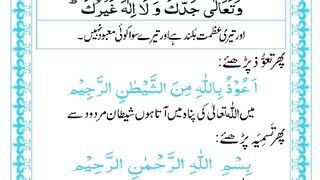 وَتَعَالٰى جَدُّكَ وَ لَا اِلٰهَ غَيْرُكَ ؕ
اور تیری عظمت بلند ہے اور تیرے سوا کوئی معبود نہیں۔
پھر تعوُّذ پڑھئے:
اَعُوْذُ بِاللّٰهِ مِنَ الشَّيْطٰنِ الرَّجِيْمِ
میں اللہ تعالٰی کی پناہ میں آتا ہوں شیطان مردود سے
پھر تَسمِیَہ پڑھئے:
بِسْمِ اللّٰهِ الرَّحْمٰنِ الرَّحِيْمِ